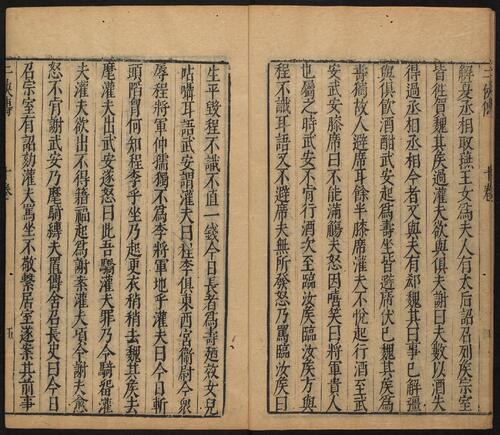 解夏丞相取燕王女為夫人有太后詔召列侯宗室
皆徃賀魏其侯過灌夫欲與俱夫謝曰夫數以酒失
得過丞相丞相今者又與夫有郄魏其曰事已解彊
與俱飲酒酣武安起為壽坐皆避席伏已魏其侯為
壽獨故人避席耳餘半膝席灌夫不悅起行酒至武
安武安膝席曰不能滿觴夫怒因嘻笑曰將軍貴人
也屬之時武安不肯行酒次至臨汝侯臨汝侯方與
程不識耳語又不避席夫無所發怒乃罵臨汝侯曰
生平毀程不識不直一錢今日長者為壽廼效女兒
呫囁耳語武安謂灌夫曰程李俱東西宮衛尉今衆
辱程將軍仲孺獨不為李將軍地乎灌夫曰今日斬
頭陷胷何知程李乎坐乃起更衣稍稍去魏其侯去
麾灌夫出武安遂怒曰此吾驕灌夫罪乃令騎留灌
夫灌夫欲出不得藉福起為謝案灌夫項令謝夫愈
怒不肯謝武安乃麾騎縛夫置傳舍召長史曰今日
召宗室有詔劾灌夫罵坐不敬繫居室遂案其前事